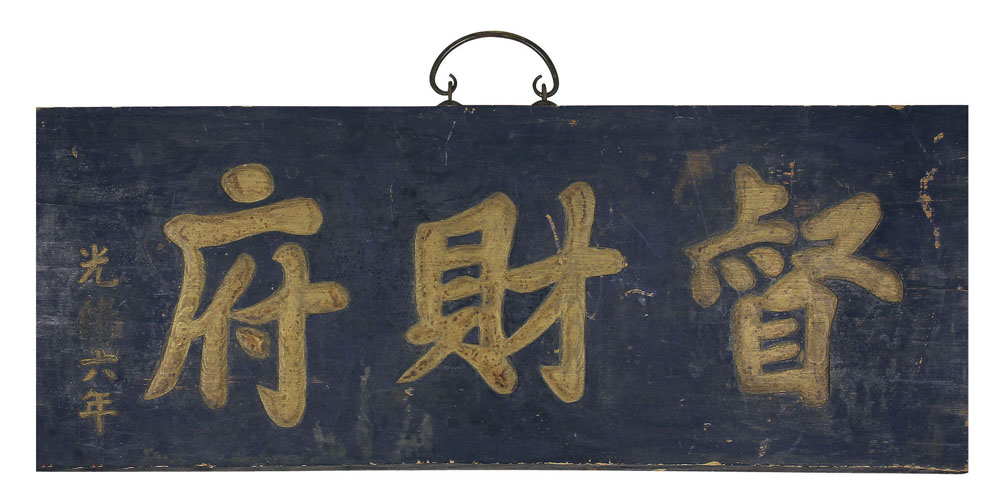 督財府
光緒六年